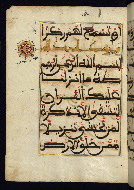 أو تسمع لهم ركزا
بسم الله الرحمن الرحيم
طه ما أنزلنا
عليك القرآن
لتشقى إلا تذكرة
لمن يخشى تنزيلا
ممن خلق الأرض